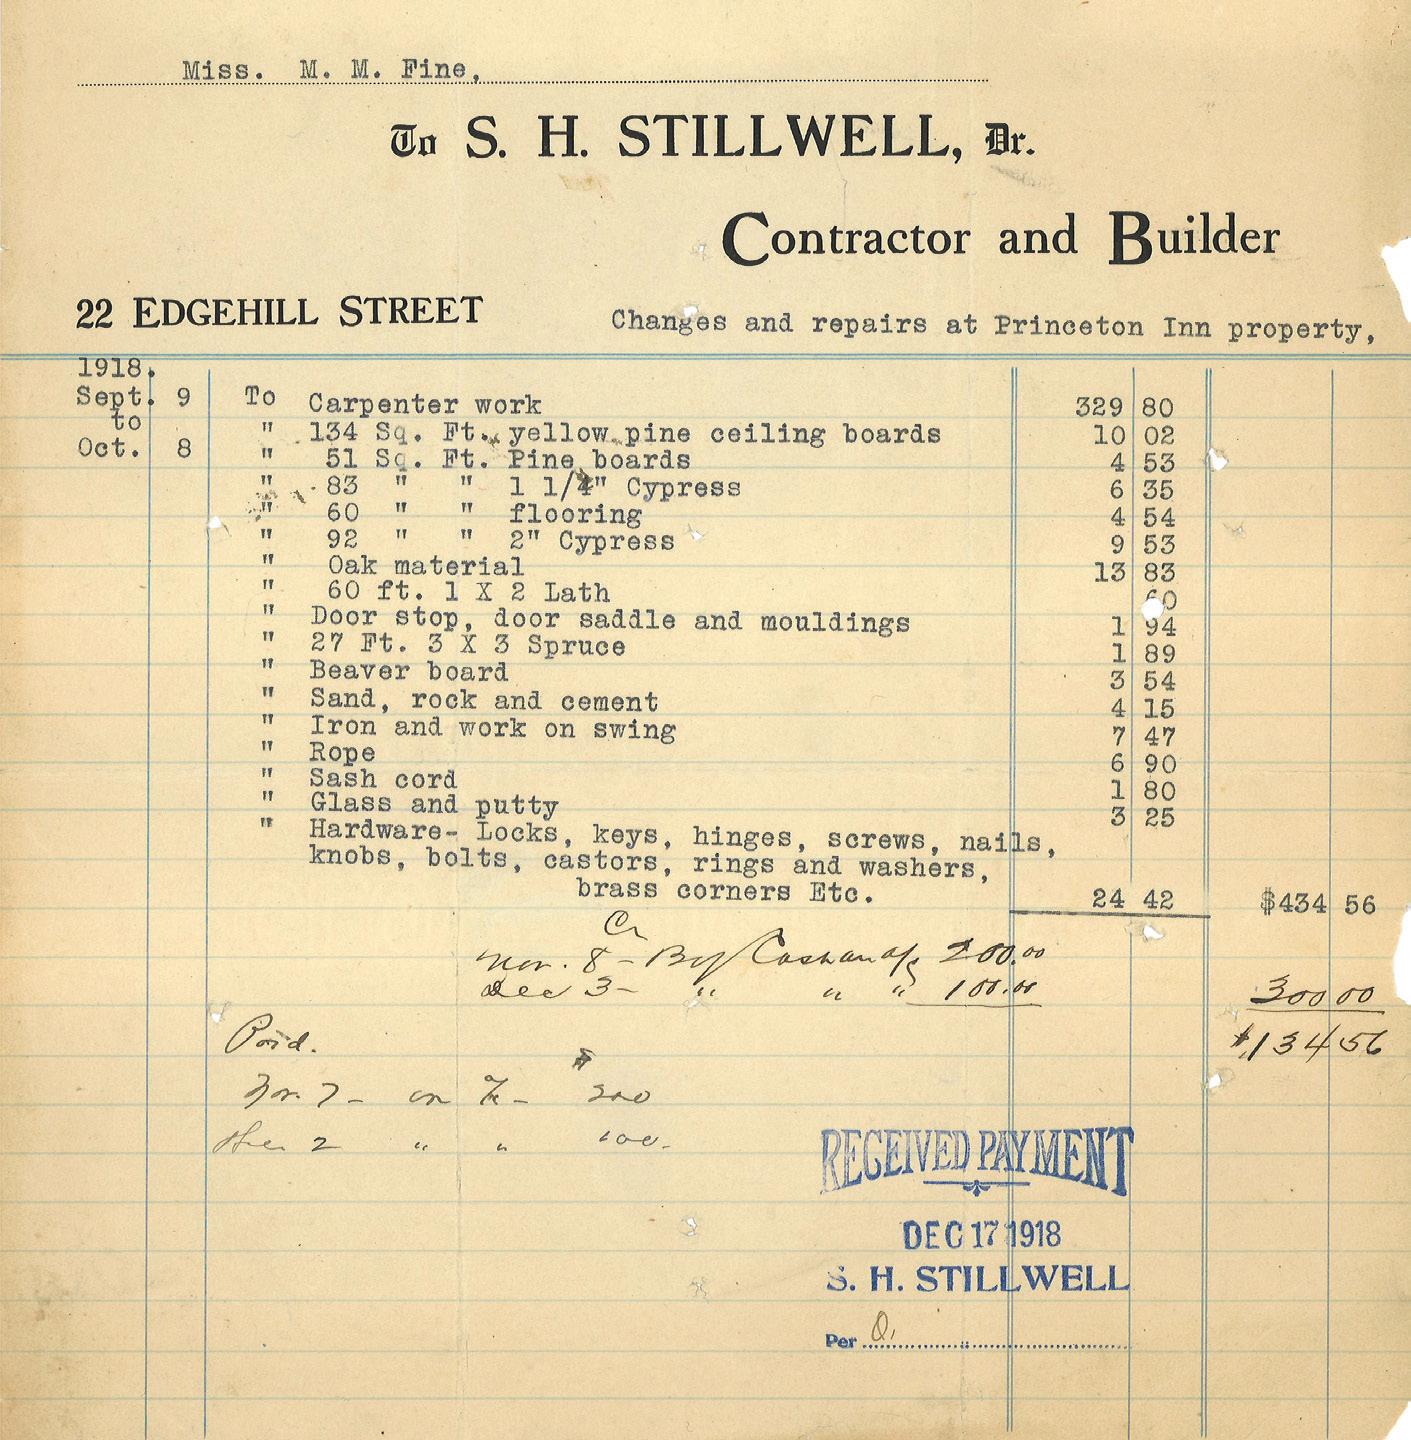 Miss. M. M. Fine,
To S. H. STILLWELL, Dr.
Contractor and Builder
22 EDGEHILL STREET Changes and repairs at Princeton Inn property,
1918.
Sept. 9 To Carpenter work 329 80
to " 134 Sq. Ft. yellow pine ceiling boards 10 02
Oct. 8 " 51 Sq. Ft. Pine boards 4 53
" 83 " " 1 1/4" Cypress 6 35
" 60 " " flooring 4 54
" 92 " " 2" Cypress 9 53
" Oak material 13 83
" 60 ft. 1 X 2 Lath 60
" Door stop, door saddle and mouldings 1 94
" 27 Ft. 3 X 3 Spruce 1 89
" Beaver board 3 54
" Sand, rock and cement 4 15
" Iron and work on swing 7 47
" Rope 6 90
" Sash cord 1 80
" Glass and putty 3 25
" Hardware- Locks, keys, hinges, screws, nails,
knobs, bolts, castors, rings and washers,
brass corners Etc. 24 42 $434 56
Cr
Nov. 8 - By Cash on a/c 200.00
Dec 3 - " " " 100.00 300 00
$134 56
Paid.
Nov. 7 - on $200
Dec 2 " " 100.
RECEIVED PAYMENT
DEC 17 1918
S. H. STILLWELL
Per